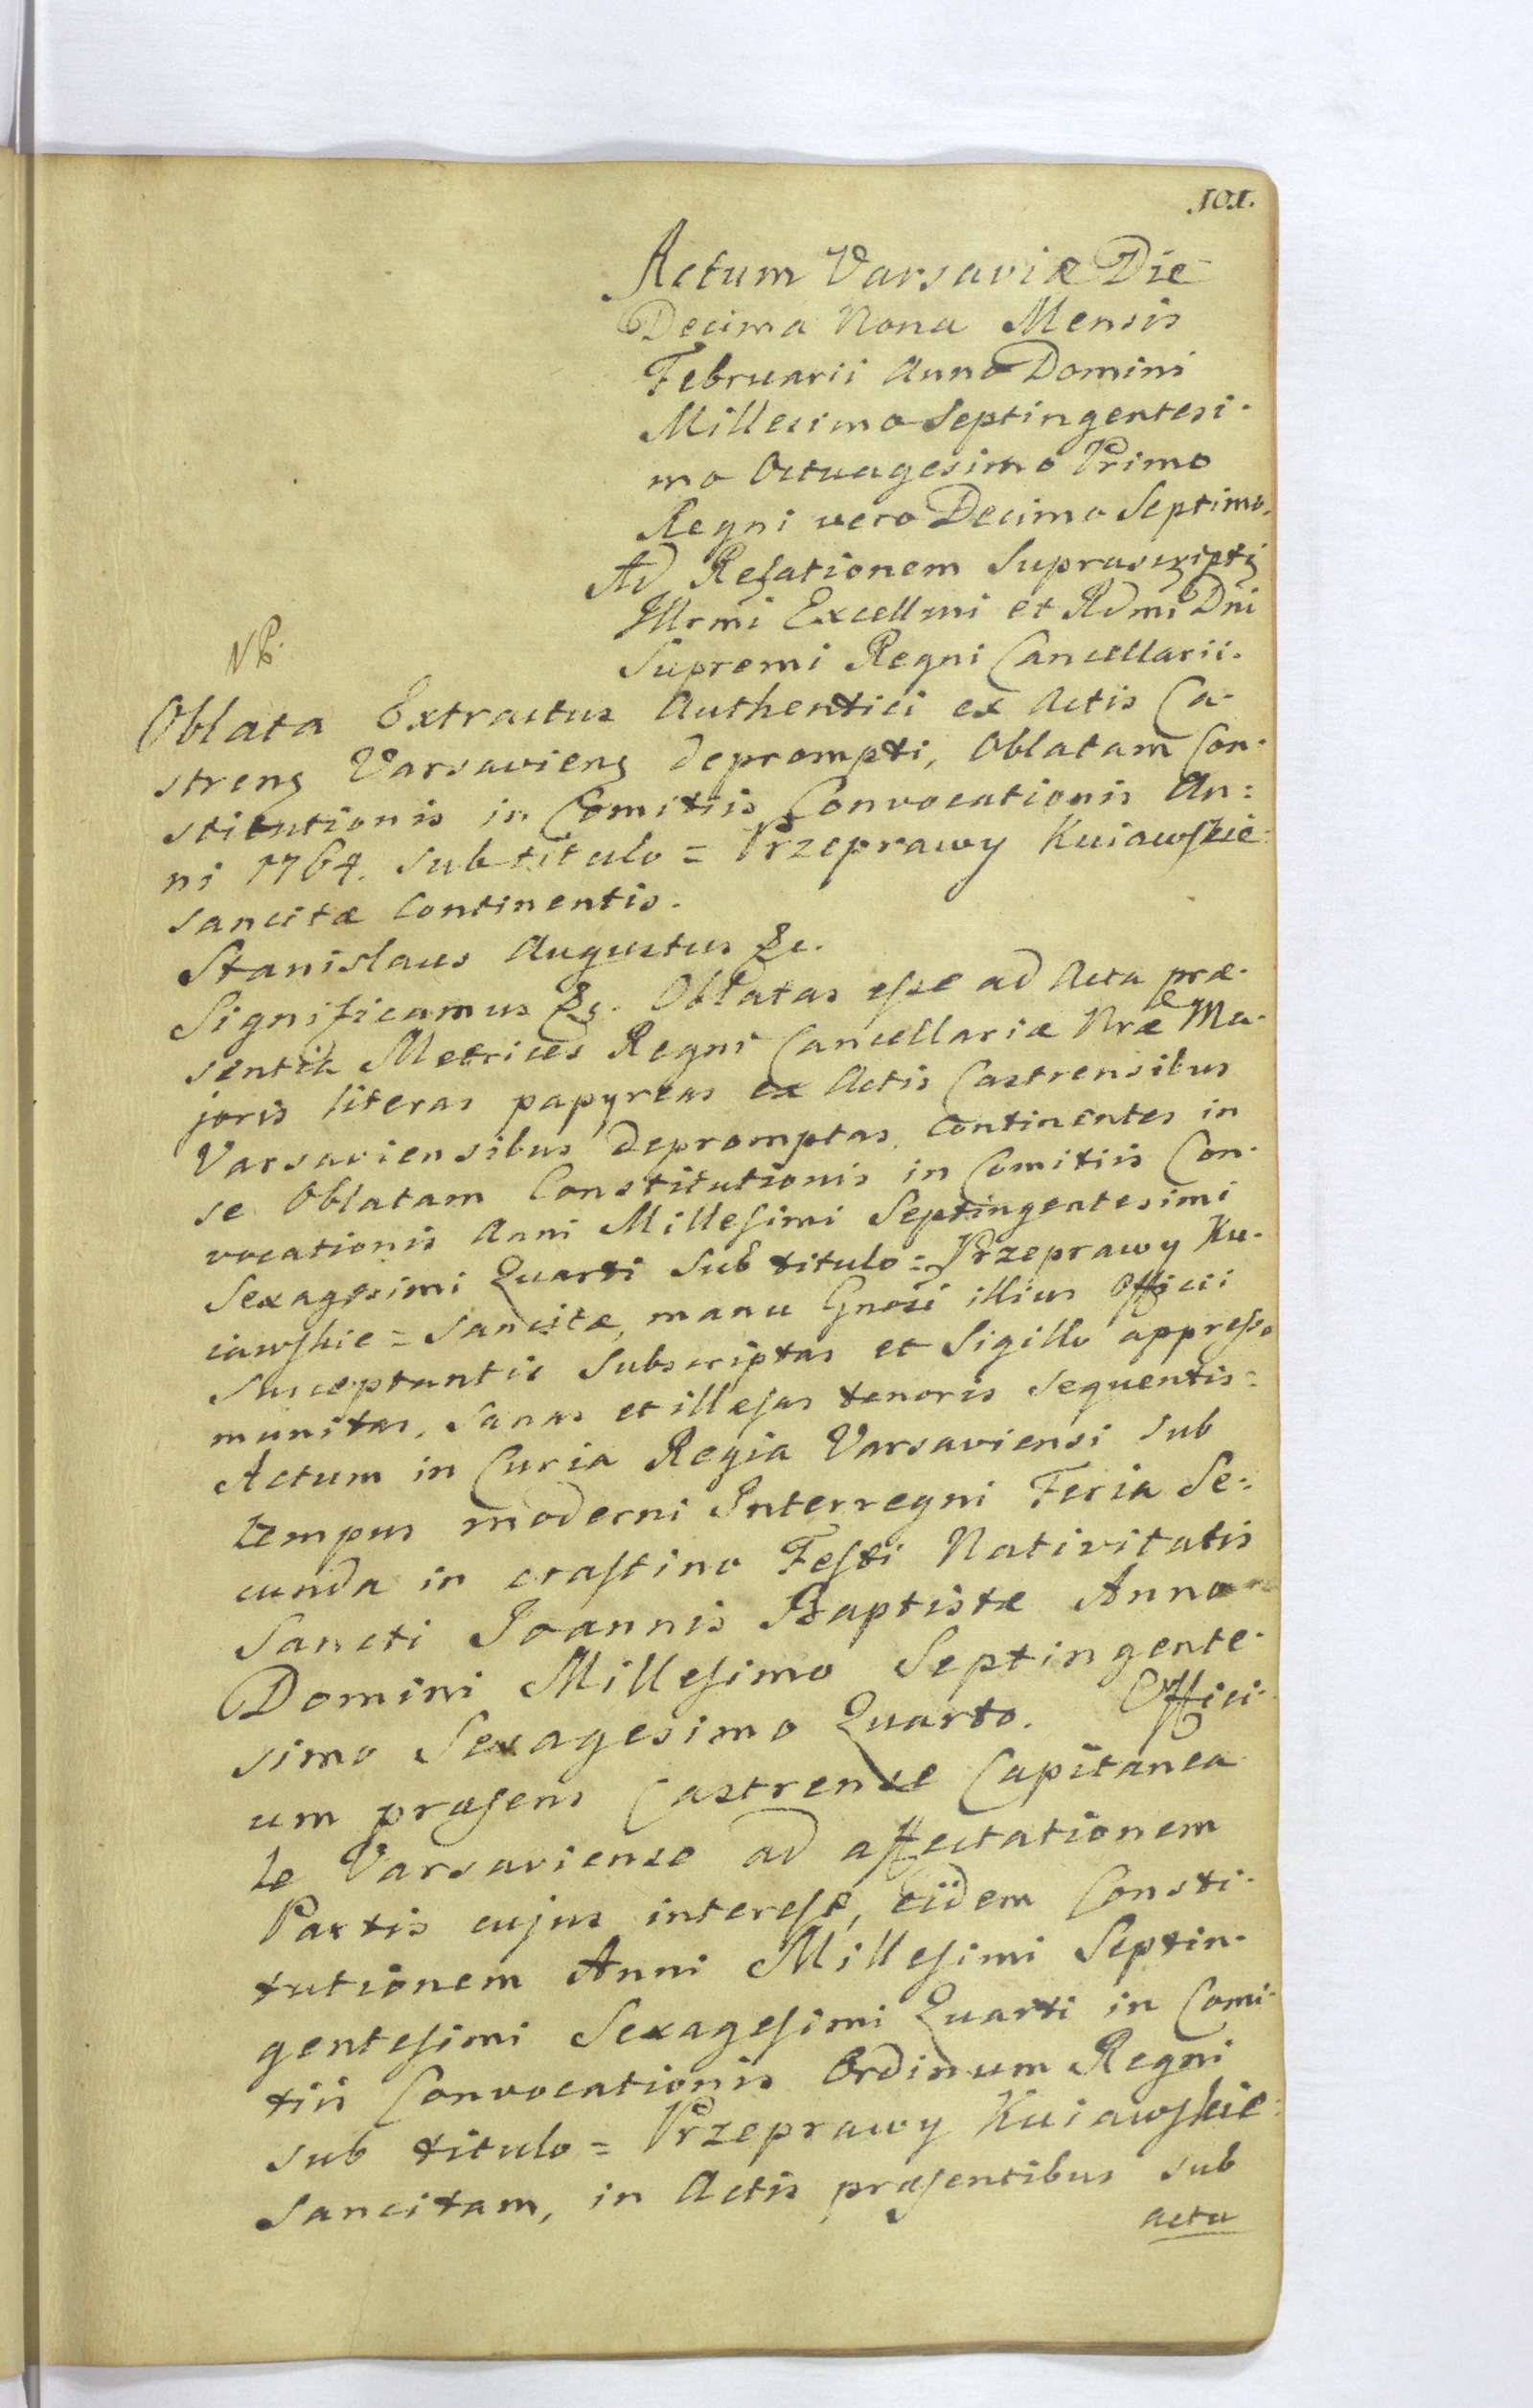 101.
Actum Varsaviæ Die
Decima Nona Mensis
Februarii Anno Domini
Millesimo Septingentesi-
mo Octuagesimo Primo
Regni vero Decimo Septimo.
Ad Relationem Suprascripti
Illrmi Excellmi et Rdmi Dni
Supremi Regni Cancellarii.
NB.
Oblata Extractus Authentici ex Actis Ca-
streng Varsavieng deprompti, Oblatam Con-
stitutionis in Comitiis Convocationis An=
ni 1764. sub titulo = Przeprawy Kuiawskie=
sancitæ continentis.
Stanislaus Augustus &c.
Significamus &c. Oblatas esse ad Acta præ-
sentia Metrices Regni Cancellariæ Nræ Ma-
joris literas papyreas ex Actis Castrensibus
Varsaviensibus depromptas, continentes in
se Oblatam Constitutionis in Comitiis Con-
vocationis Anni Millesimi Septingentesimi
Sexagesimi Quarti sub titulo = Przeprawy Ku-
iawskie = Sancitæ, manu Gnosi illius Officii
Susceptantis Subscriptas et Sigillo appresso
munitas, sanas et illæsas tenoris sequentis=
Actum in Curia Regia Varsaviensi sub
tempus moderni Interregni Feria Se=
cunda in crastino Festi Nativitatis
Sancti Joannis Baptistæ Anno
Domini Millesimo Septingente-
simo Sexagesimo Quarto. Offici-
um præsens Castrense Capitanea
le Varsaviense ad affectationem
Partis cujus interest, eidem Consti-
tutionem Anni Millesimi Septin-
gentesimi Sexagesimi Quarti in Comi-
tiis Convocationis Ordinum Regni
sub titulo = Przeprawy Kuiawskie=
Sancitam, in Actis præsentibus sub
acta